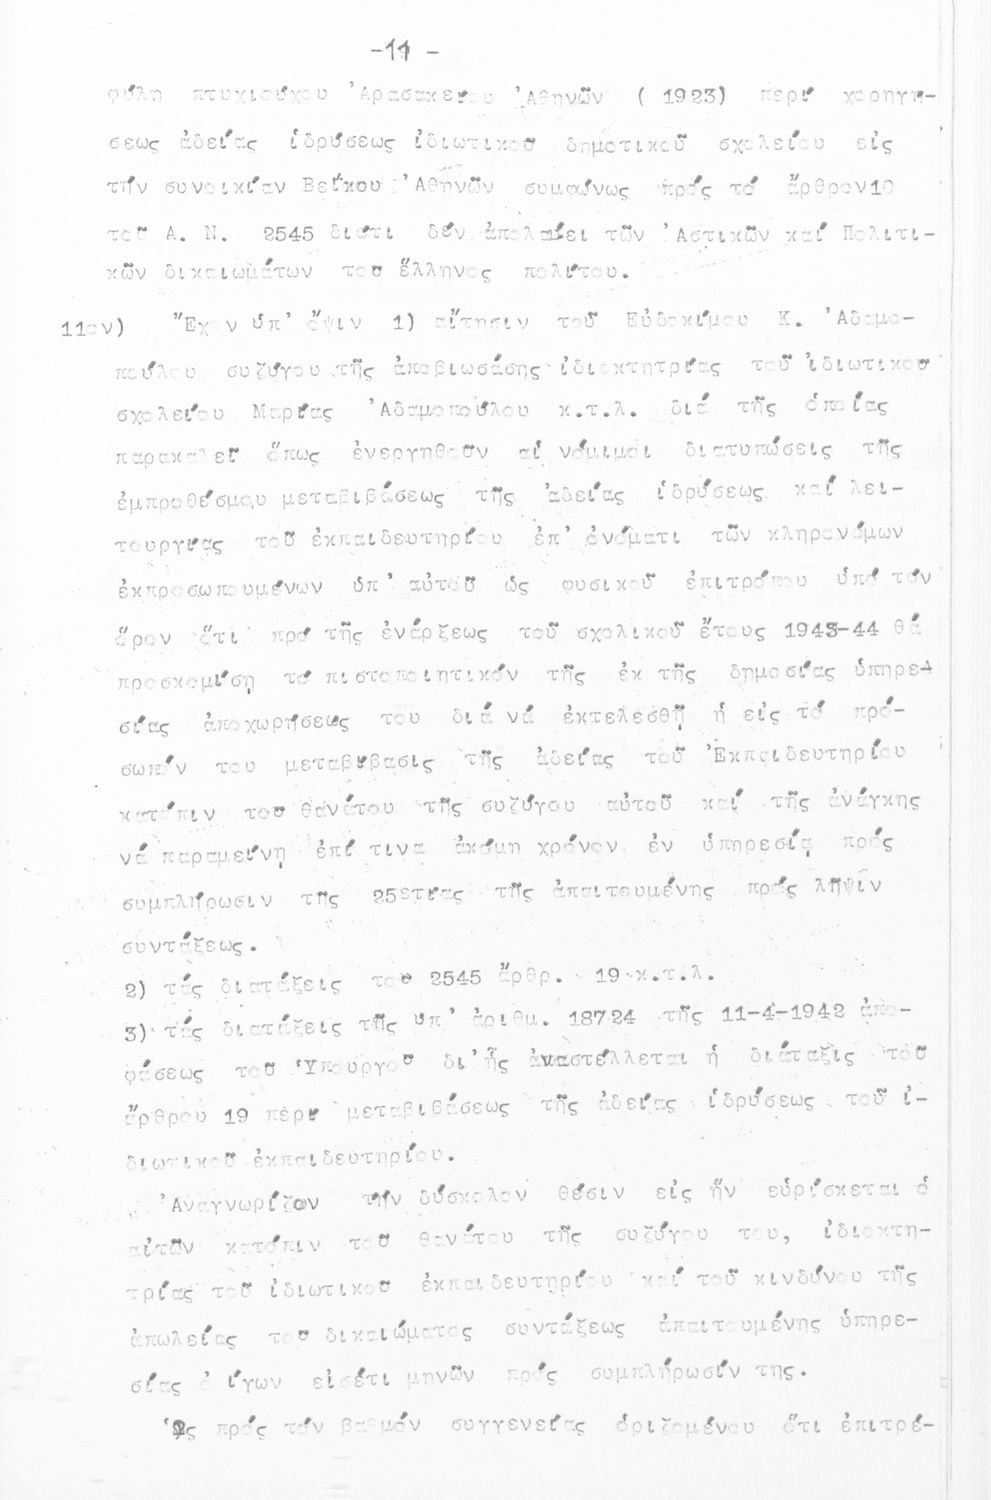 -11 -
φύλη πτυχιούχου Ἀρσακείου Ἀθηνῶν ( 1923) περί χορηγή-
σεως ἀδείας ἱδρύσεως ἰδιωτικοῦ δημοτικοῦ σχολείου εἰς
τήν συνοικίαν Βεΐκου Ἀθηνῶν συμφώνως πρός τό ἄρθρον10
τοῦ Α. Ν. 2545 διότι δέν ἀπολαύει τῶν Ἀστικῶν καί Πολιτι-
κῶν δικαιωμάτων του ἕλληνος πολίτου.
11ον) Ἔχον ὑπ' ὄψιν 1) αἴτησιν τοῦ Εὐδοκίμου Κ. Ἀδαμο-
πούλου συζύγου τῆς ἀποβιωσάσης ἰδιοκτητρίας τοῦ ἰδιωτικοῦ
σχολείου Μαρίας Ἀδαμοπούλου κ.τ.λ. διά τῆς ὁποίας
παρακαλεῖ ὅπως ἐνεργηθοῦν αἱ νόμιμοι διατυπώσεις τῆς
ἐμπροθέσμου μεταβιβάσεως τῆς ἀδείας ἱδρύσεως καί λει-
τουργίας τοῦ ἐκπαιδευτηρίου ἐπ' ὀνόματι τῶν κληρονόμων
ἐκπροσωπουμένων ὑπ' αὐτοῦ ὡς φυσικοῦ ἐπιτρόπου ὑπό τόν
ὅρον ὅτι πρό τῆς ἐνάρξεως τοῦ σχολικοῦ ἔτους 1943-44 θά
προσκομίση τό πιστοποιητικόν τῆς ἐκ τῆς δημοσίας ὑπηρε-
σίας ἀποχωρήσεώς του διά νά ἐκτελεσθῇ ἡ εἰς τό πρό-
σωπόν του μεταβίβασις τῆς ἀδείας τοῦ Ἐκπαιδευτηρίου
κατόπιν του θανάτου τῆς συζύγου αὐτοῦ καί τῆς ἀνάγκης
νά παραμείνῃ ἐπί τινα ἀκόμη χρόνον ἐν ὑπηρεσίᾳ πρός
συμπλήρωσιν τῆς 25ετίας τῆς ἀπαιτουμένης πρός λῆψιν
συντάξεως.
2) τάς διατάξεις τοῦ 2545 ἄρθρ. 19 κ.τ.λ.
3) τάς διατάξεις τῆς ὑπ' ἀριθμ. 18724 τῆς 11-4-1942 ἀπο-
φάσεως τοῦ Ὑπουργοῦ δι' ἧς ἀναστέλλεται ἡ διάταξις τοῦ
ἄρθρου 19 περί μεταβιβάσεως τῆς ἀδείας ἱδρύσεως τοῦ ἰ-
διωτικοῦ ἐκπαιδευτηρίου.
Ἀναγνωρίζον τήν δύσκολον θέσιν εἰς ἥν εὑρίσκεται ὁ
αἰτῶν κατόπιν τοῦ θανάτου τῆς συζύγου του, ἰδιοκτη-
τρίας τοῦ ἰδιωτικοῦ ἐκπαιδευτηρίου καί τοῦ κινδύνου τῆς
ἀπωλείας του δικαιώματος συντάξεως ἀπαιτουμένης ὑπηρε-
σίας ὀλίγων εἰσέτι μηνῶν πρός συμπλήρωσίν της.
Ὡς πρός τόν βαθμόν συγγενείας ὁριζομένου ὅτι ἐπιτρέ-